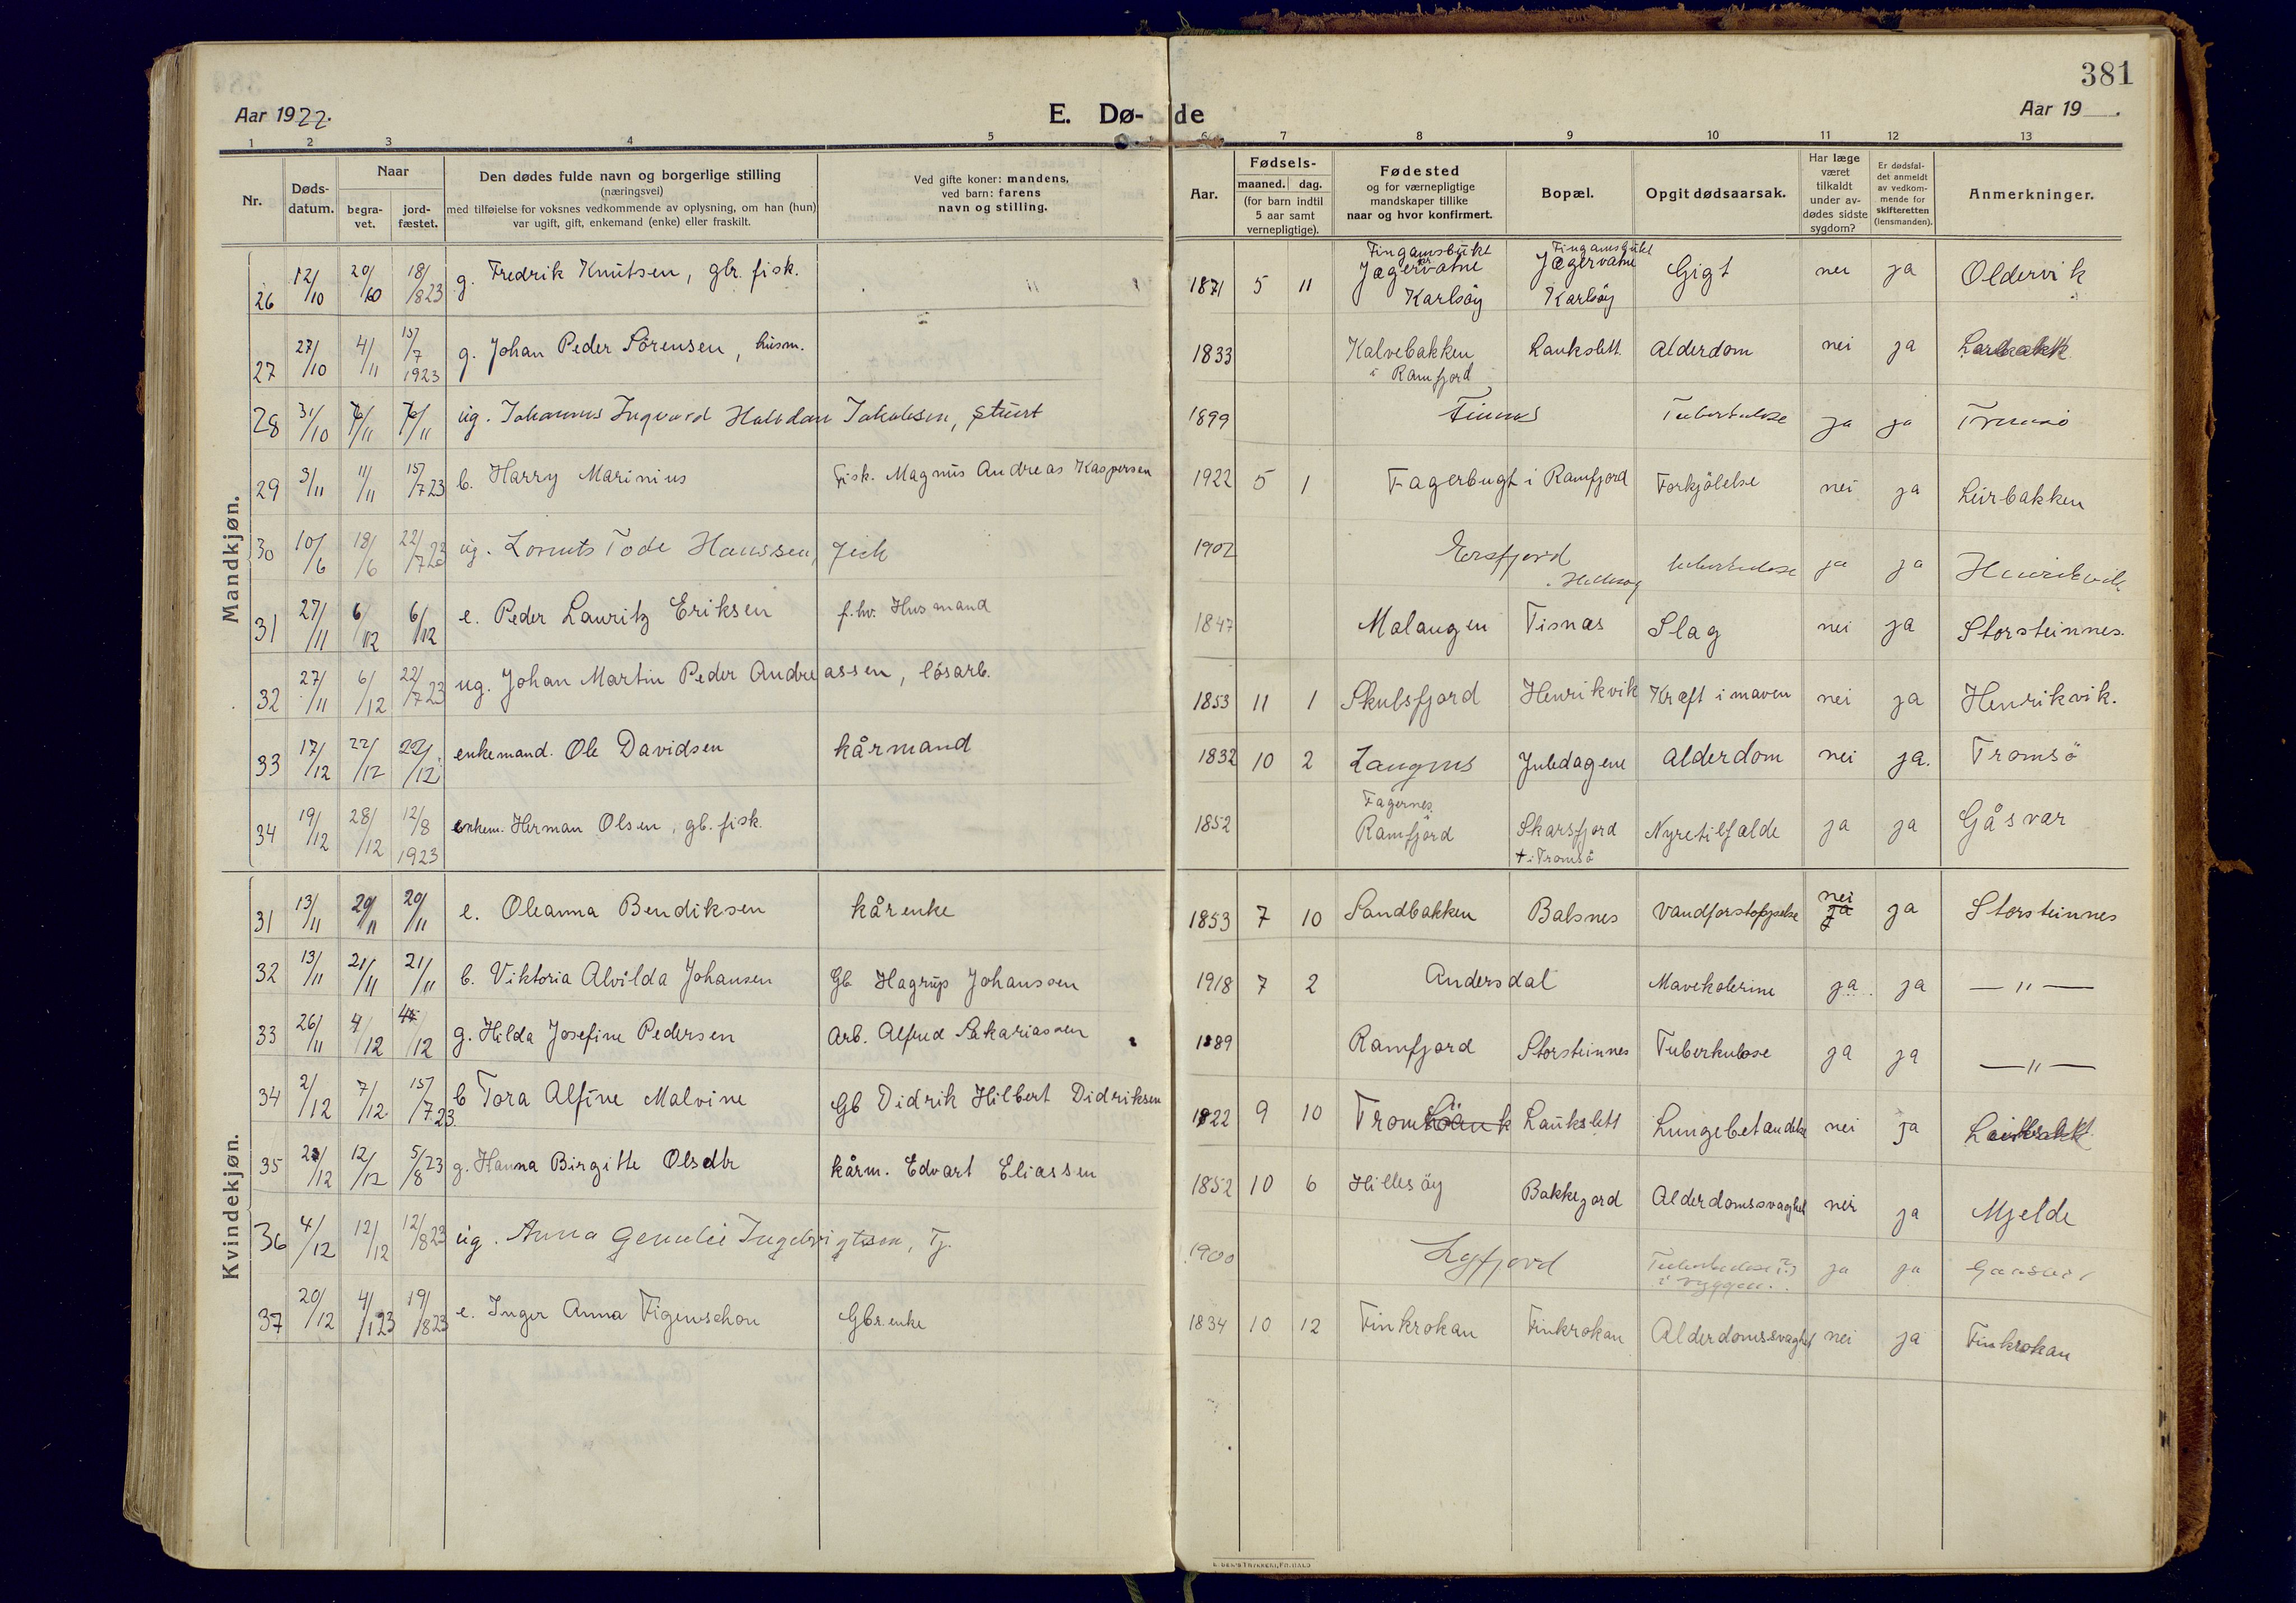 381
Aar 1922.
E. Dø- de
Aar 19 .
1 2 3 4 5 6 7 8 9 10 11 12 13
Nr.
Døds-
datum.
Naar
begra-
vet.
jord-
fæstet.
Den dødes fulde navn og borgerlige stilling
(næringsvei)
med tilføielse for voksnes vedkommende av oplysning, om han (hun)
var ugift, gift, enkemand (enke) eller fraskilt.
Ved gifte koner: mandens,
ved barn: farens
navn og stilling.
Aar.
Fødsels-
maaned. dag.
(for barn indtil
5 aar samt
vernepligtige).
Fødested
og for værnepligtige
mandskaper tillike
naar og hvor konfirmert.
Bopæl.
Opgit dødsaarsak.
Har læge
været
tilkaldt
under av-
dødes sidste
sygdom?
Er dødsfal-
det anmeldt
av vedkom-
mende for
skifteretten
(lensmanden).
Anmerkninger.
Mandkjøn.
26 12/10 20/10 18/823 g. Fredrik Knutsen, gbr. fisk. 1871 5 11 Jægervatne Karlsöy Jægervatne Karlsöy Gigt nei ja Oldervik
27 27/10 4/11 15/7 1923 g. Johan Peder Sörensen, husm. 1833 Kalvebakken i Ramfjord Laukslett Alderdom nei ja
28 31/10 11 11 ug. Johannes Ingvard Halvdan Jakobsen, 1899 Tuberkulose ja ja Tromsö
29 3/11 11/11 15/723 b. Harry Marinius Fisk. Magnus Andreas Kaspersen 1922 5 1 Fagerbugt i Ramfjord Forkjölelse nei ja Leirbakken
30 10/6 18/6 22/723 ug. Tode Hanssen, 1902 Ersfjord tuberkulose ja ja Henrikvik
31 27/11 6/12 6/12 e. Peder Lauritz Eriksen f.hv. Husmand 1847 Malangen Tisnæs Slag nei ja Storsteinnes.
32 27/11 6/12 22/723 ug. Johan Martin Peder Andreassen, lösarb. 1853 11 1 Skulsfjord Henrikvik Kræft i maven nei ja Henrikvik.
33 17/12 22/12 22/12 enkemand. Ole Davidsen kårmand 1832 10 2 Langnes Juledagene Alderdom nei ja. Tromsö
34 19/12 28/12 12/8 1923 enkem. Herman Olsen, gb. fisk. 1852 Fagernes. Ramfjord Skarsfjord + i Tromsö Nyretilfælde ja ja Gåsvær
Kvindekjøn.
31 13/11 20/11 20/11 e. Oleanna Bendiksen kårenke 1853 7 10 Sandbakken Balsnes nei ja ja Storsteinnes
32 13/11 21/11 21/11 b. Viktoria Alvilda Johansen Gb Hagrup Johanssen 1918 7 2 Andersdal Mavekolerine ja ja — " —
33 26/11 4/12 4/12 g. Hilda Josefine Pedersen Arb. Alfred Sakariassen 1889 Ramfjord Storsteinnes Tuberkulose ja ja — " —
34 2/12 7/12 15/723 b Tora Alfine Malvine Gb Didrik Hilbert Didriksen 1922 9 10 Laukslett Lungebetændelse nei ja
35 2/12 12/12 5/8 23 g. Hanna Birgitte Olsdtr kårm. Edvart Eliassen 1852 10 6 Hillesöy Bakkejord Alderdomssvaghet nei ja Mjelde
36 4/12 12/12 12/823 ug. Anna Ingebrigtsen, Tj. 1900 Tuberkulose i ryggen. ja ja
37 20/12 4/123 19/823 e. Inger Anna Figenschou Gbr. enke 1834 10 12 Finkrokan Finkrokan Alderdomssvaghet nei ja Finkrokan